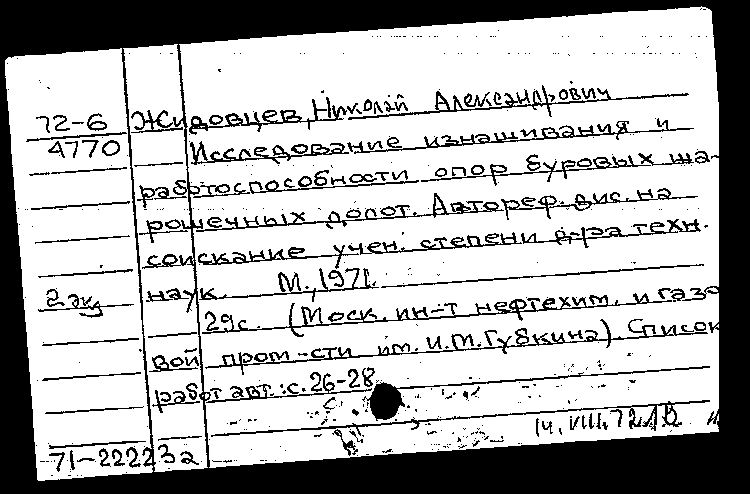 72-6 Жидовцев, Николай Александрович
4770 Исследование изнашивания и
работоспособности опор буровых ша-
рошечных долот. Автореф. дис. на
соискание учен. степени д-ра техн.
2 экз наук. М., 1971.
29с. (Моск. ин-т нефтехим. и газо
вой пром-сти им. И.М.Губкина). Список
работ авт.: с. 26-28
14.VIII.72
71-22223а